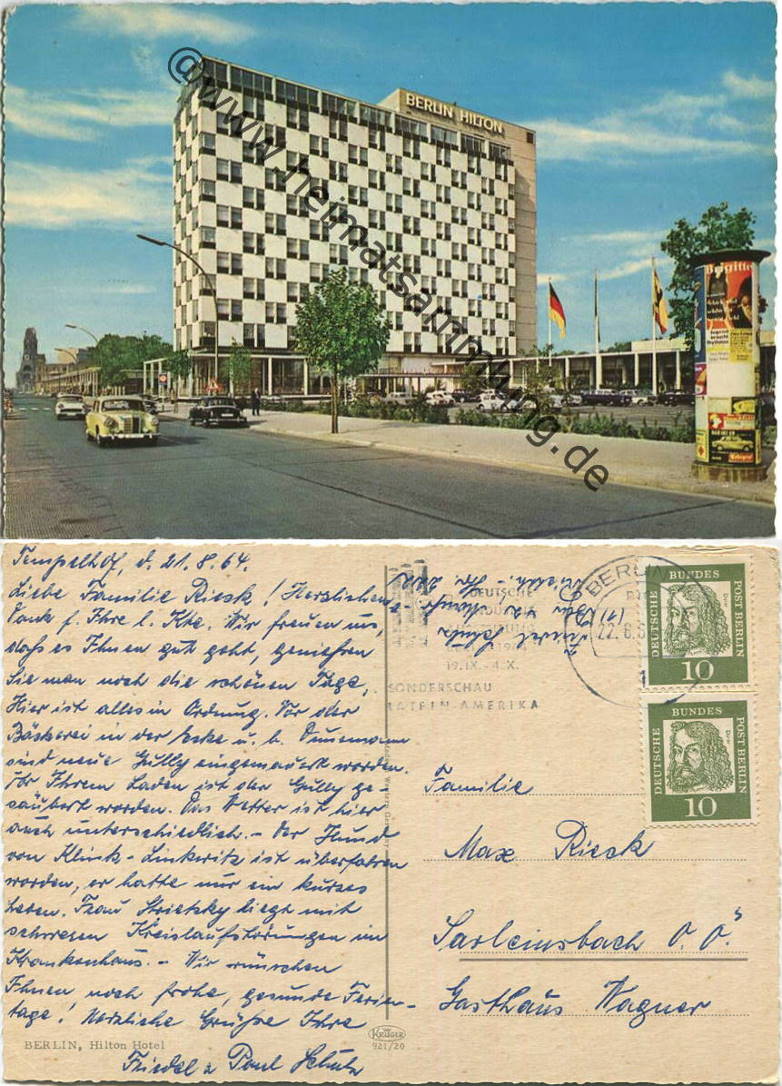 BERLIN HILTON
Brigitte
@www.heimatsammlung.de
Tempelhof, d. 21.8.64.
Liebe Familie Rieck! Herzlichen
Dank f. Ihre l. Kte. Wir freuen uns,
dass es Ihnen gut geht, genießen
Sie man noch die schönen Tage,
Hier ist alles in Ordnung. Vor der
Bäckerei in der Ecke u. b. Dunemann
sind neue Gully eingemauert worden.
Vor Ihrem Laden ist der Gully ge-
säubert worden. Das Wetter ist hier
auch unterschiedlich.- Der Hund
von Klink-Linkwitz ist überfahren
worden, er hatte nur ein kurzes
Leben. Frau Strietzky liegt mit
schweren Kreislaufstörungen im
Krankenhaus.- Wir wünschen
Ihnen noch frohe, gesunde Ferien-
tage! Herzliche Grüße Ihre
Friedel u Paul Schulz
BERLIN, Hilton Hotel
KRÜGER
921/20
DEUTSCHE
INDUSTRIE
AUSSTELLUNG
1964
19.IX.-4.X.
SONDERSCHAU
LATEIN-AMERIKA
BERLIN
22.8.
DEUTSCHE BUNDES POST BERLIN
Dürer
10
DEUTSCHE BUNDES POST BERLIN
Dürer
10
Familie
Max Rieck
Sarleinsbach O.Ö.
Gasthaus Wagner